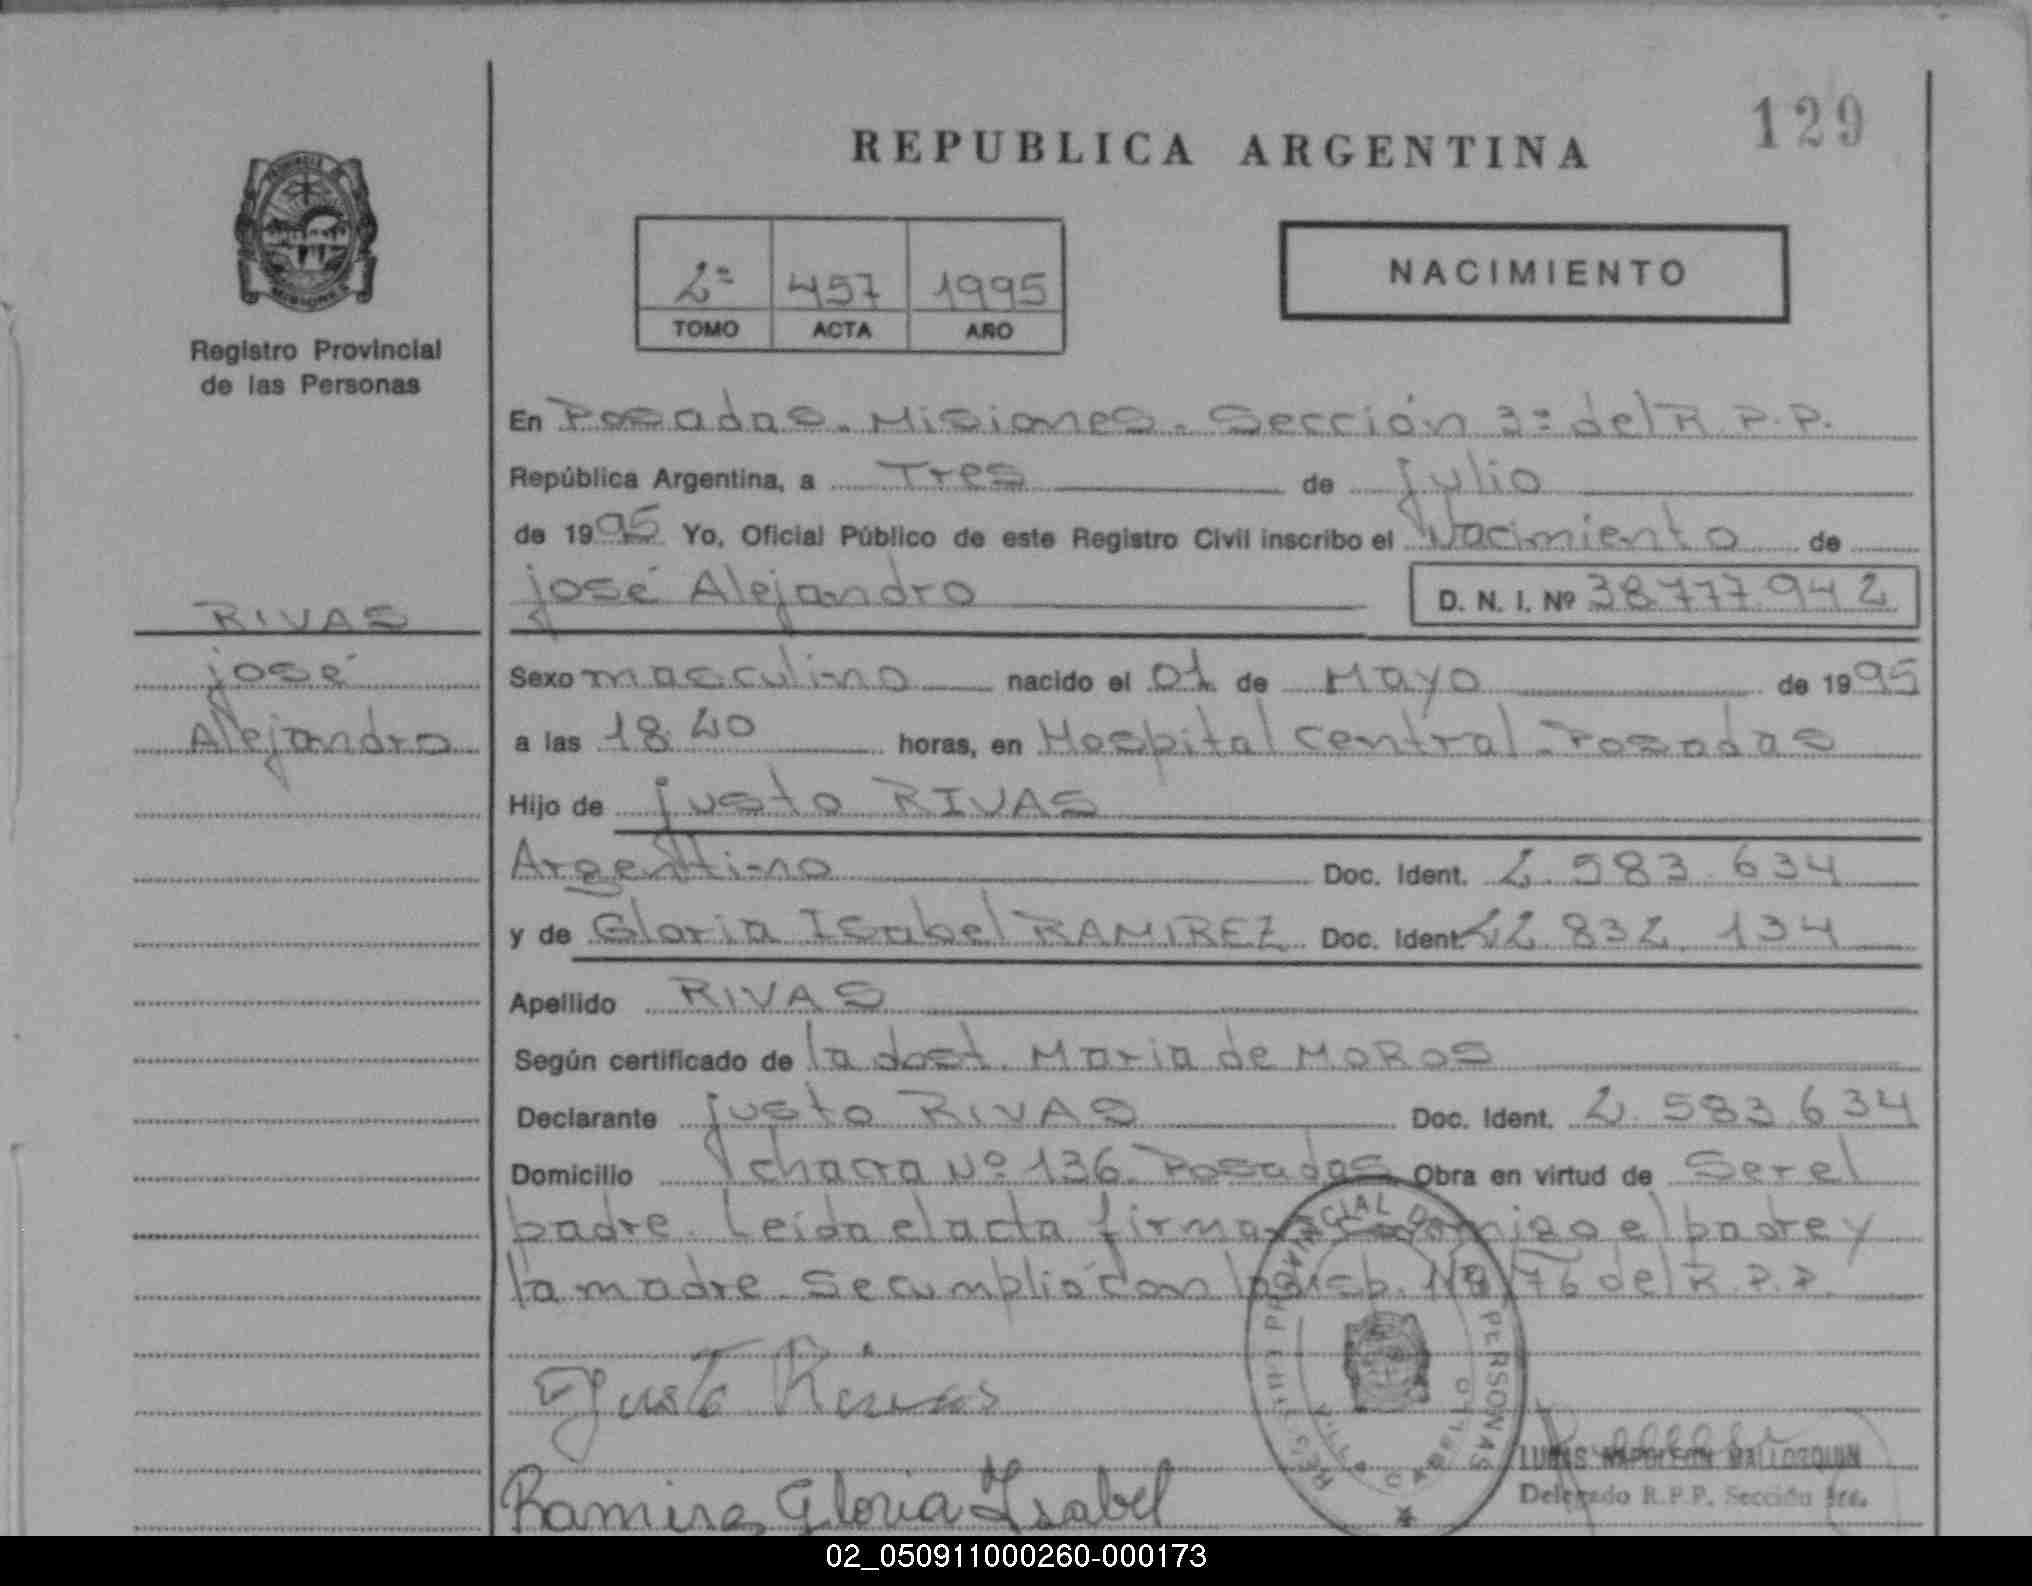 129
REPUBLICA ARGENTINA
NACIMIENTO
2º 457 1995
TOMO ACTA AÑO
Registro Provincial
de las Personas
En Posadas. Misiones. Sección 3º del R.P.P.
República Argentina, a Tres de julio
de 1995 Yo, Oficial Público de este Registro Civil inscribo el Nacimiento de
josé Alejandro D. N. I. Nº 38.777.942
RIVAS
josé
Alejandro
Sexo masculino nacido el 01 de Mayo de 1995
a las 18.40 horas, en Hospital Central. Posadas
Hijo de justo RIVAS
Argentino Doc. Ident. 2.583.634
y de Gloria Isabel RAMIREZ Doc. Ident. 22.832.134
Apellido RIVAS
Según certificado de la dost. Maria de MOROS
Declarante justo RIVAS Doc. Ident. 2.583.634
Domicilio chacra Nº 136. Posadas Obra en virtud de Ser el
padre. Leida el acta firman conmigo el padre y
la madre. Se cumplió con la disp. 76 del R.P.P.
Justo Rivas
Ramirez Gloria Isabel
REGISTRO PROVINCIAL DE PERSONAS
VILLA CABELLO
LUCAS NAPOLEON MALLORQUIN
Delegado R.P.P. Sección 3ra.
02_050911000260-000173